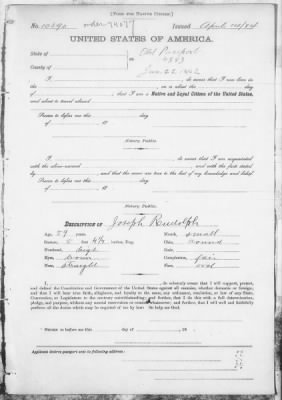 [FORM FOR NATIVE CITIZEN.]
No. 10890 Issued April
UNITED STATES OF AMERICA.
State of
Old Passport
County of
4583
Jan. 22 1862
I, , do swear that I was born in
the , on or about the day of
; that I am a Native and Loyal Citizen of the United States,
and about to travel abroad
Sworn to before me this day
of 18
Notary Public.
I, , do swear that I am acquainted
with the above-named
and that the same are true to the best of my knowledge and belief.
Sworn to before me this day
of 18
Notary Public.
DESCRIPTION OF Joseph Rudolph
Age, 59 years. Mouth, small
Stature, 5 feet inches, Eng. Chin, round
Forehead, high Hair,
Eyes, brown Complexion, fair
Nose, straight Face, oval
I, , do solemnly swear that I will support, protect,
and defend the Constitution and Government of the United States against all enemies, whether domestic or foreign;
and that I will bear true faith, allegiance, and loyalty to the same, any ordinance, resolution, or law of any State,
Convention, or Legislature to the contrary notwithstanding; and further, that I do this with a full determination,
pledge, and purpose, without any mental reservation or evasion whatsoever; and further, that I will well and faithfully
perform all the duties which may be required of me by law: So help me God.
Sworn to before me this day of , 18 .
Applicant desires passport sent to following address: